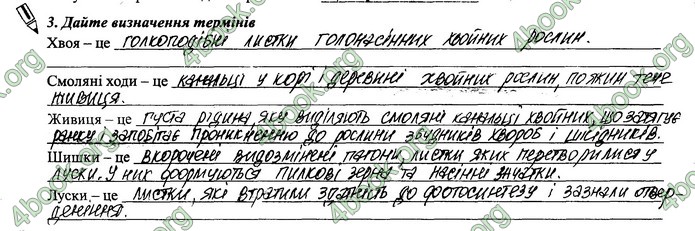 3. Дайте визначення термінів
Хвоя – це голкоподібні листки голонасінних хвойних рослин.
Смоляні ходи – це канальці у корі і деревині хвойних рослин, по яким тече
живиця.
Живиця – це густа рідина, яку виділяють смоляні канальці хвойних, що затягує
ранку і запобігає проникненню до рослини збудників хвороб і шкідників.
Шишки – це вкорочені видозмінені пагони, листки яких перетворилися у
луски. У них формуються пилкові зерна та насінні зачатки.
Луски – це листки, які втратили здатність до фотосинтезу і зазнали отвер-
дення.
4book.org